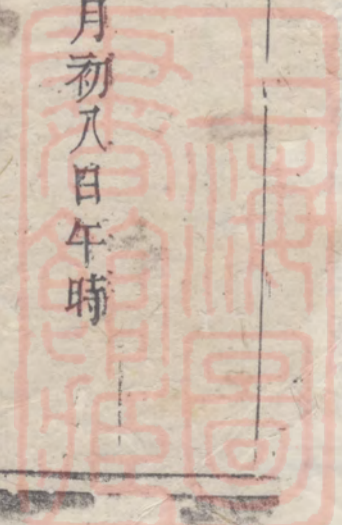 月初八日午時
上海圖
書館藏